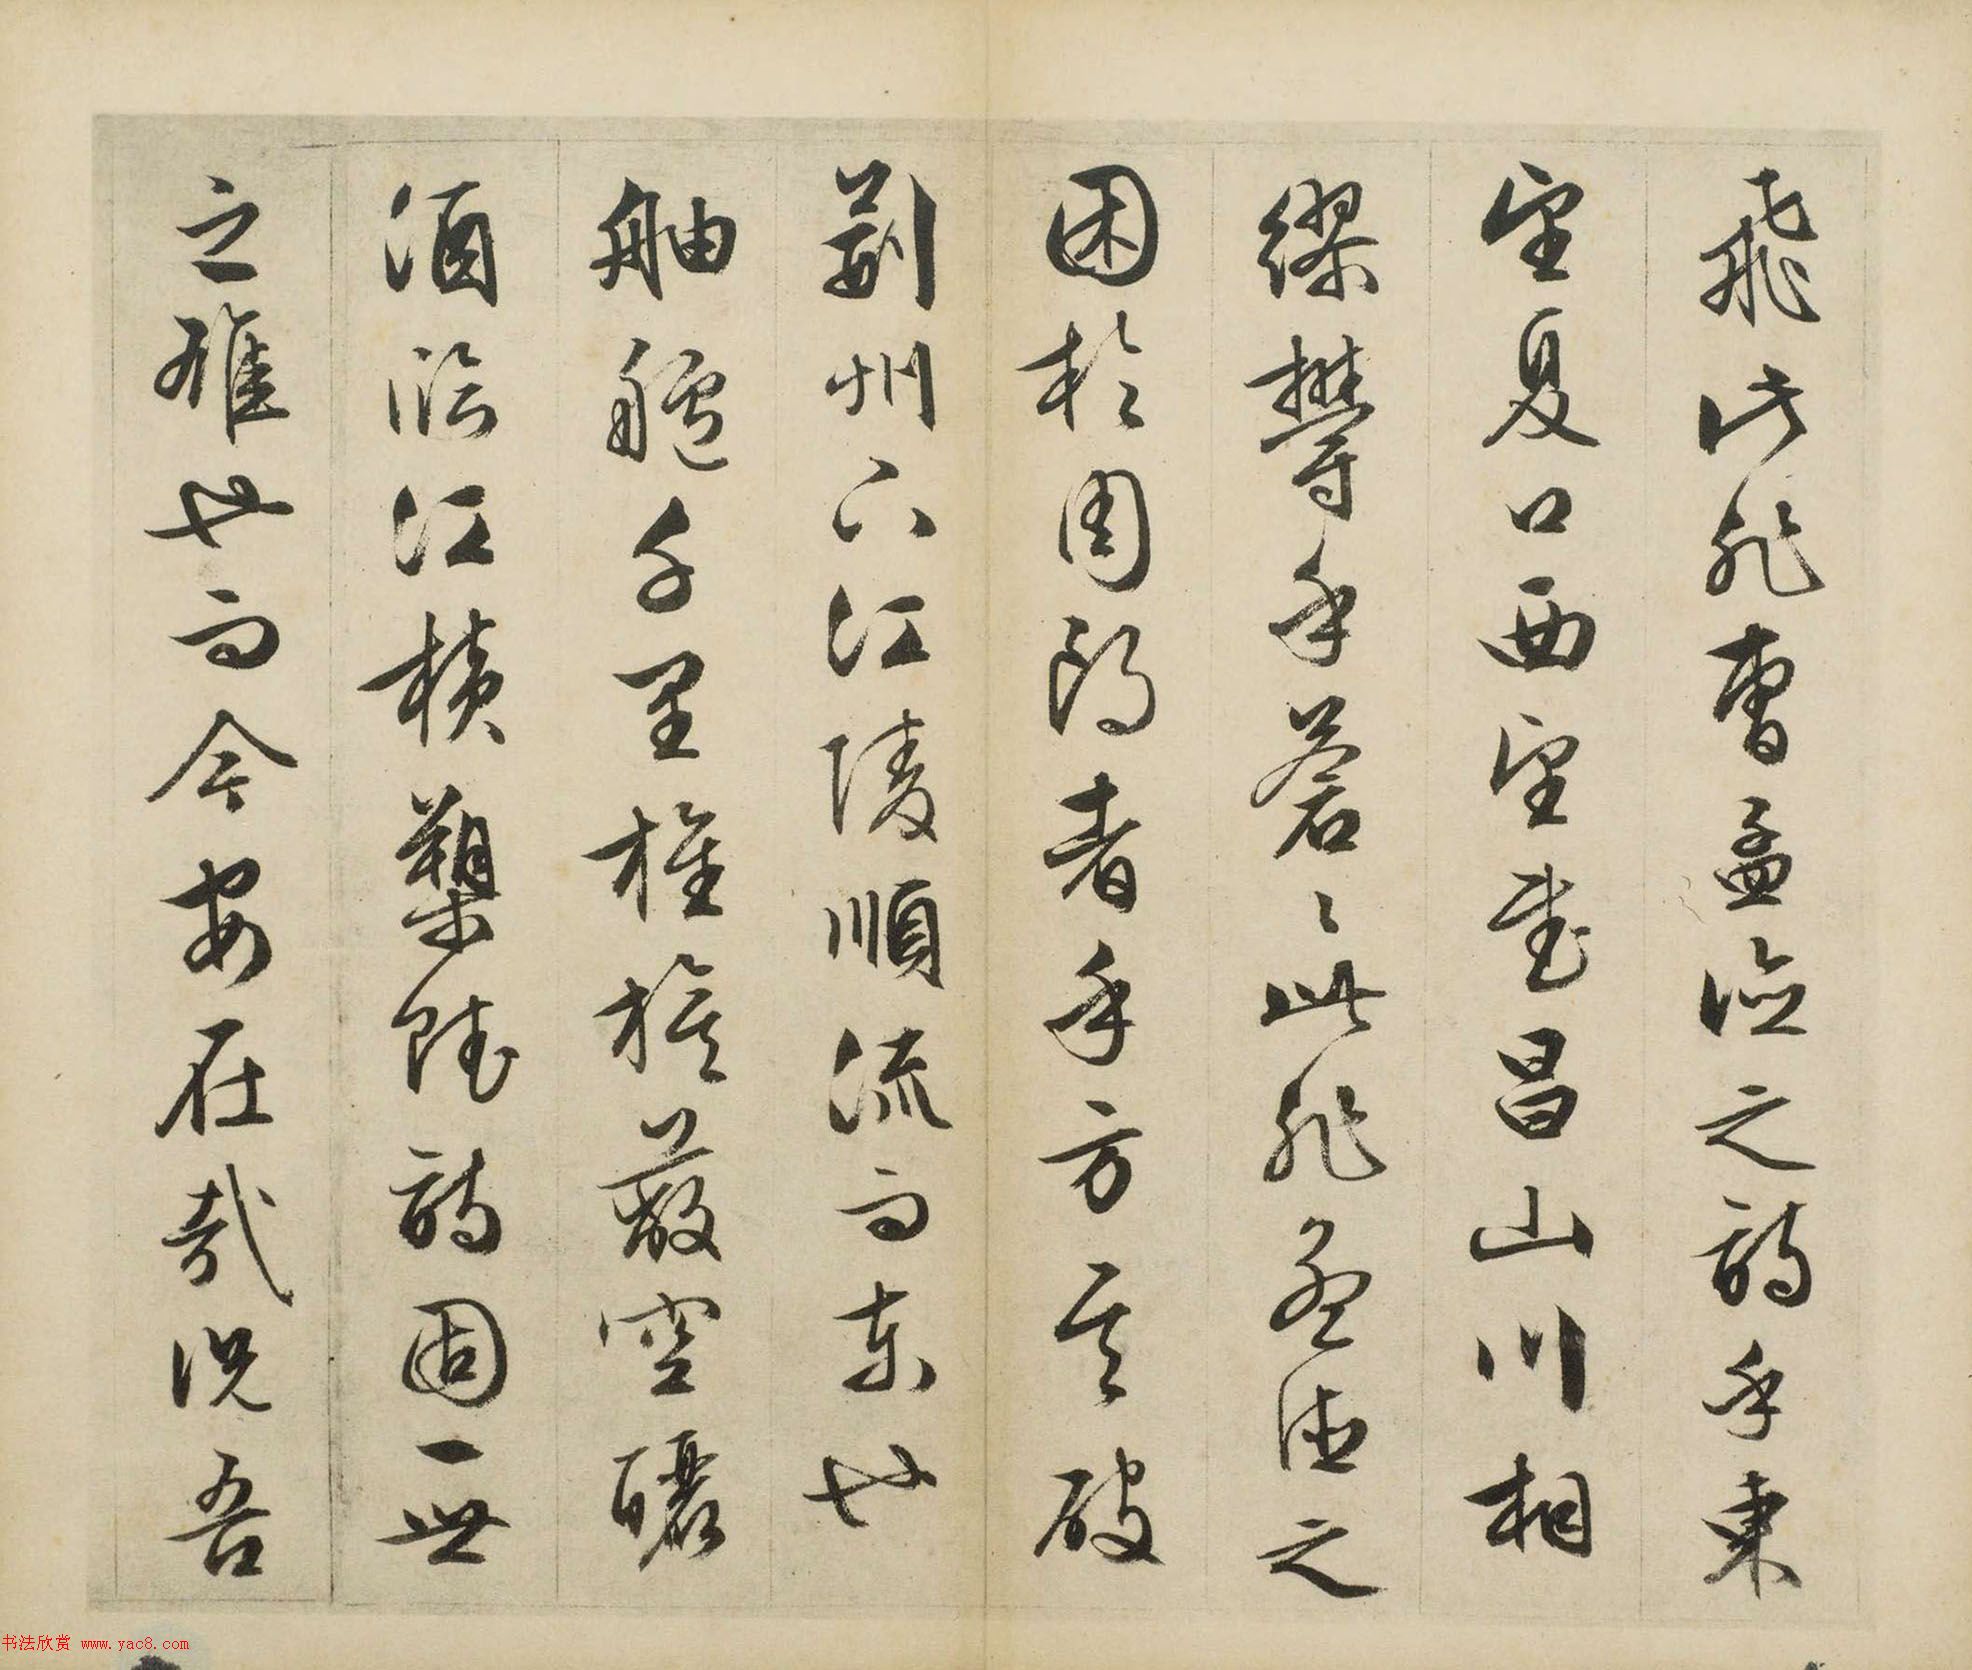 飛此非曹孟德之詩乎東
望夏口西望武昌山川相
繆鬱乎蒼〻此非孟德之
困於周郎者乎方其破
荊州下江陵順流而東也
舳艫千里旌旗蔽空釃
酒臨江橫槊賦詩固一世
之雄也而今安在哉況吾
书法欣赏 www.yac8.com